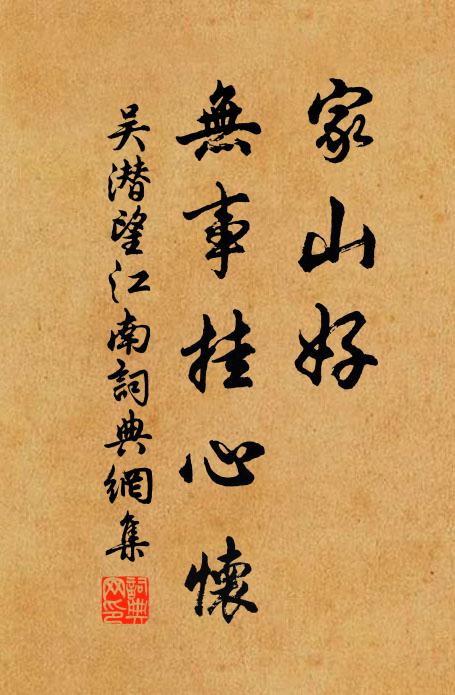 家山好
無事挂心懷
吴潜望江南詞典網集
詞典網印